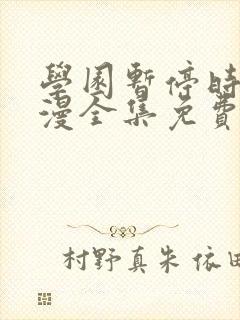 學園暫停時
漫全集免費
村野真朱 依田